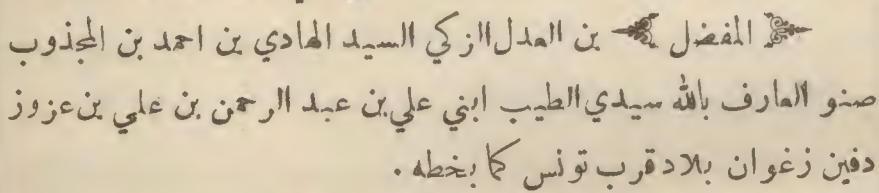 ﴿ المفضل ﴾ بن العدل الزكي السيد الهادي بن احمد بن المجذوب
صنو العارف بالله سيدي الطيب ابني علي بن عبد الرحمن بن علي بن عزوز
دفين زغوان بلاد قرب تونس كما بخطه .